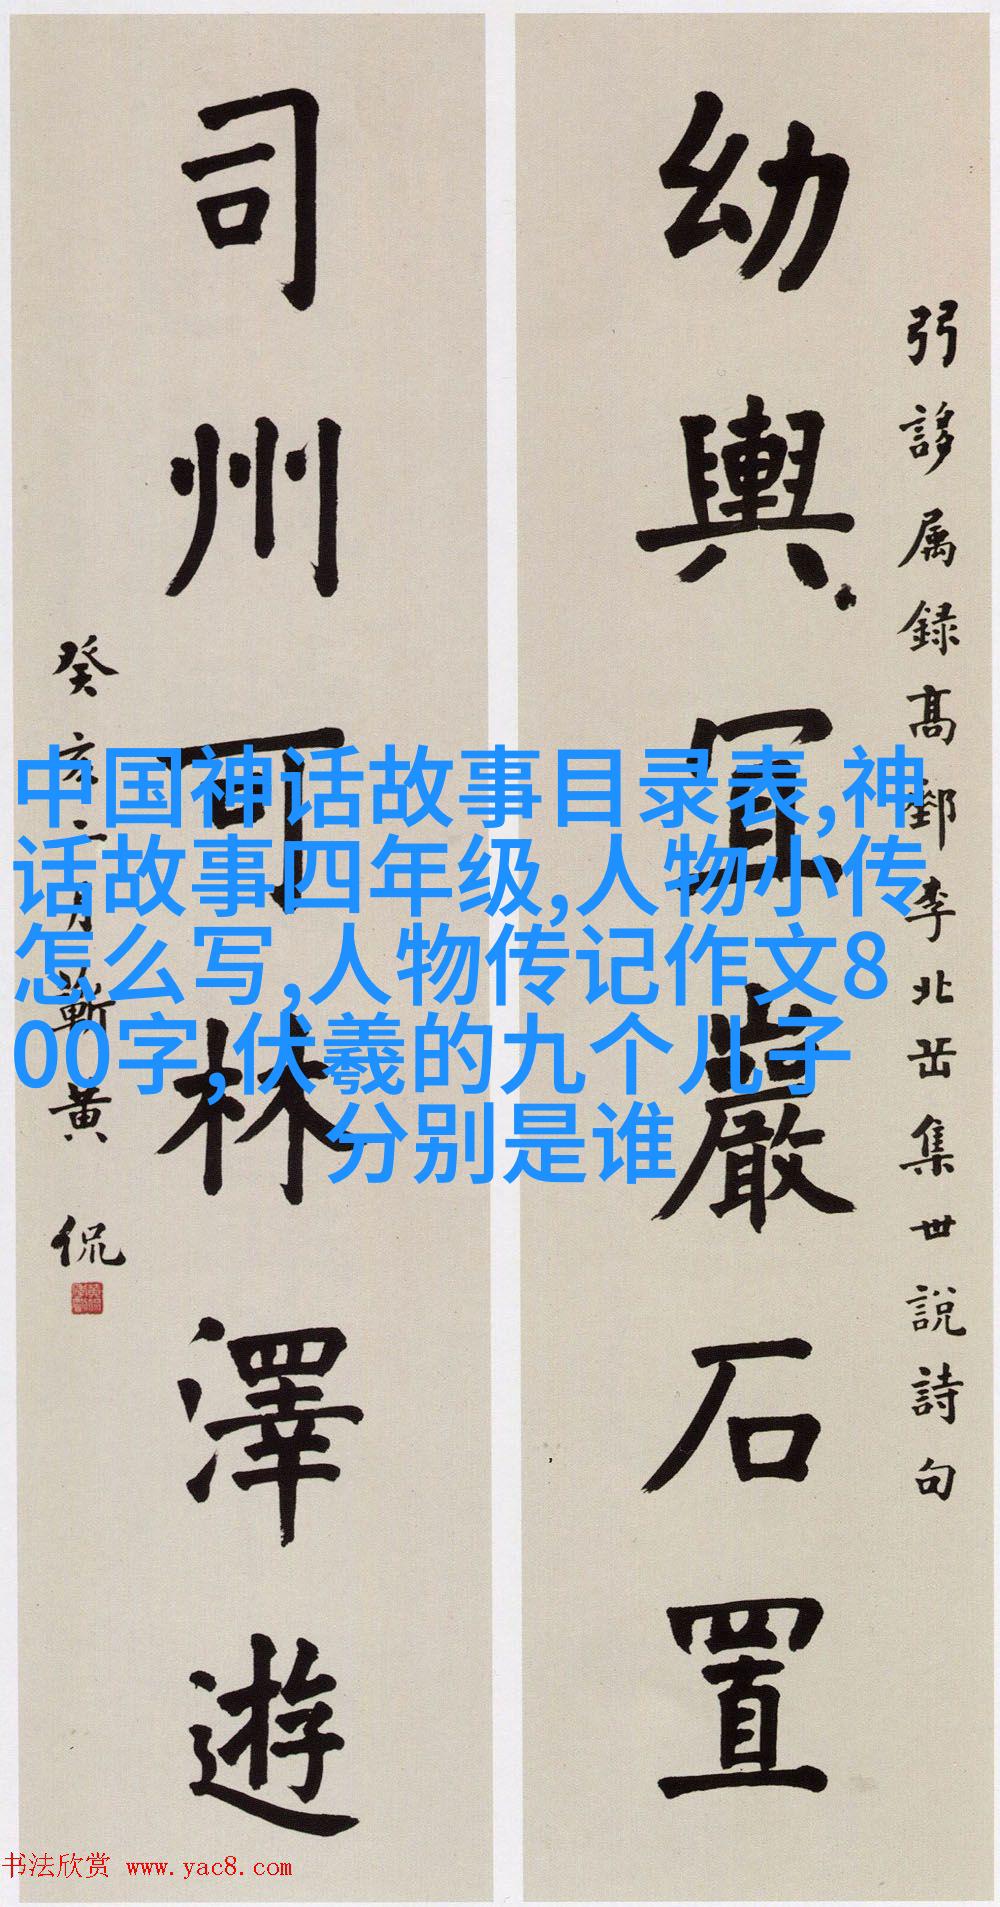 弜誃属録高郵李北岳集世說詩句
幼輿宜巖石置
司州可林澤遊
癸亥二月蘄黄侃
中国神话故事目录表,神
话故事四年级,人物小传
怎么写,人物传记作文8
00字,伏羲的九个儿子
分别是谁
书法欣赏 www.yac8.com